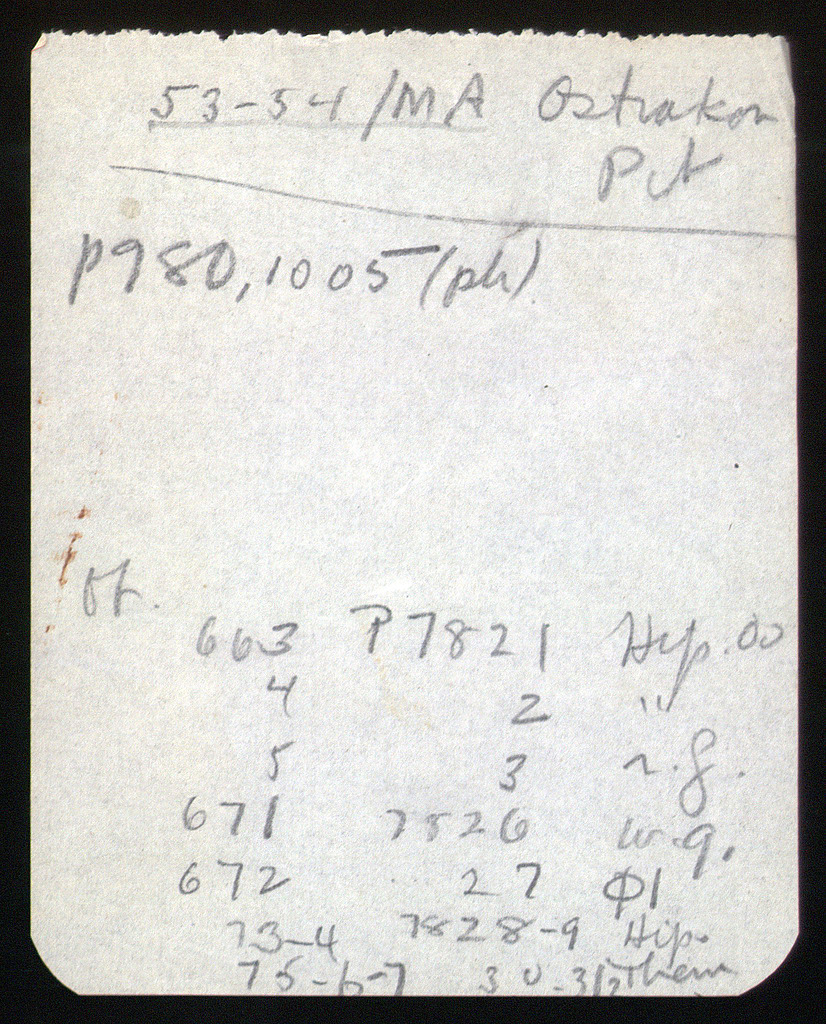 53-54/MA Ostrakon
Pit
P980, 1005 (ph)
Of.
663 P7821 Hip. OO
4 2 "
5 3 n.g.
671 7826 w.g.
672 27 Φ1
73-4 7828-9 Hip.
75-6-7 30-31/2 Them